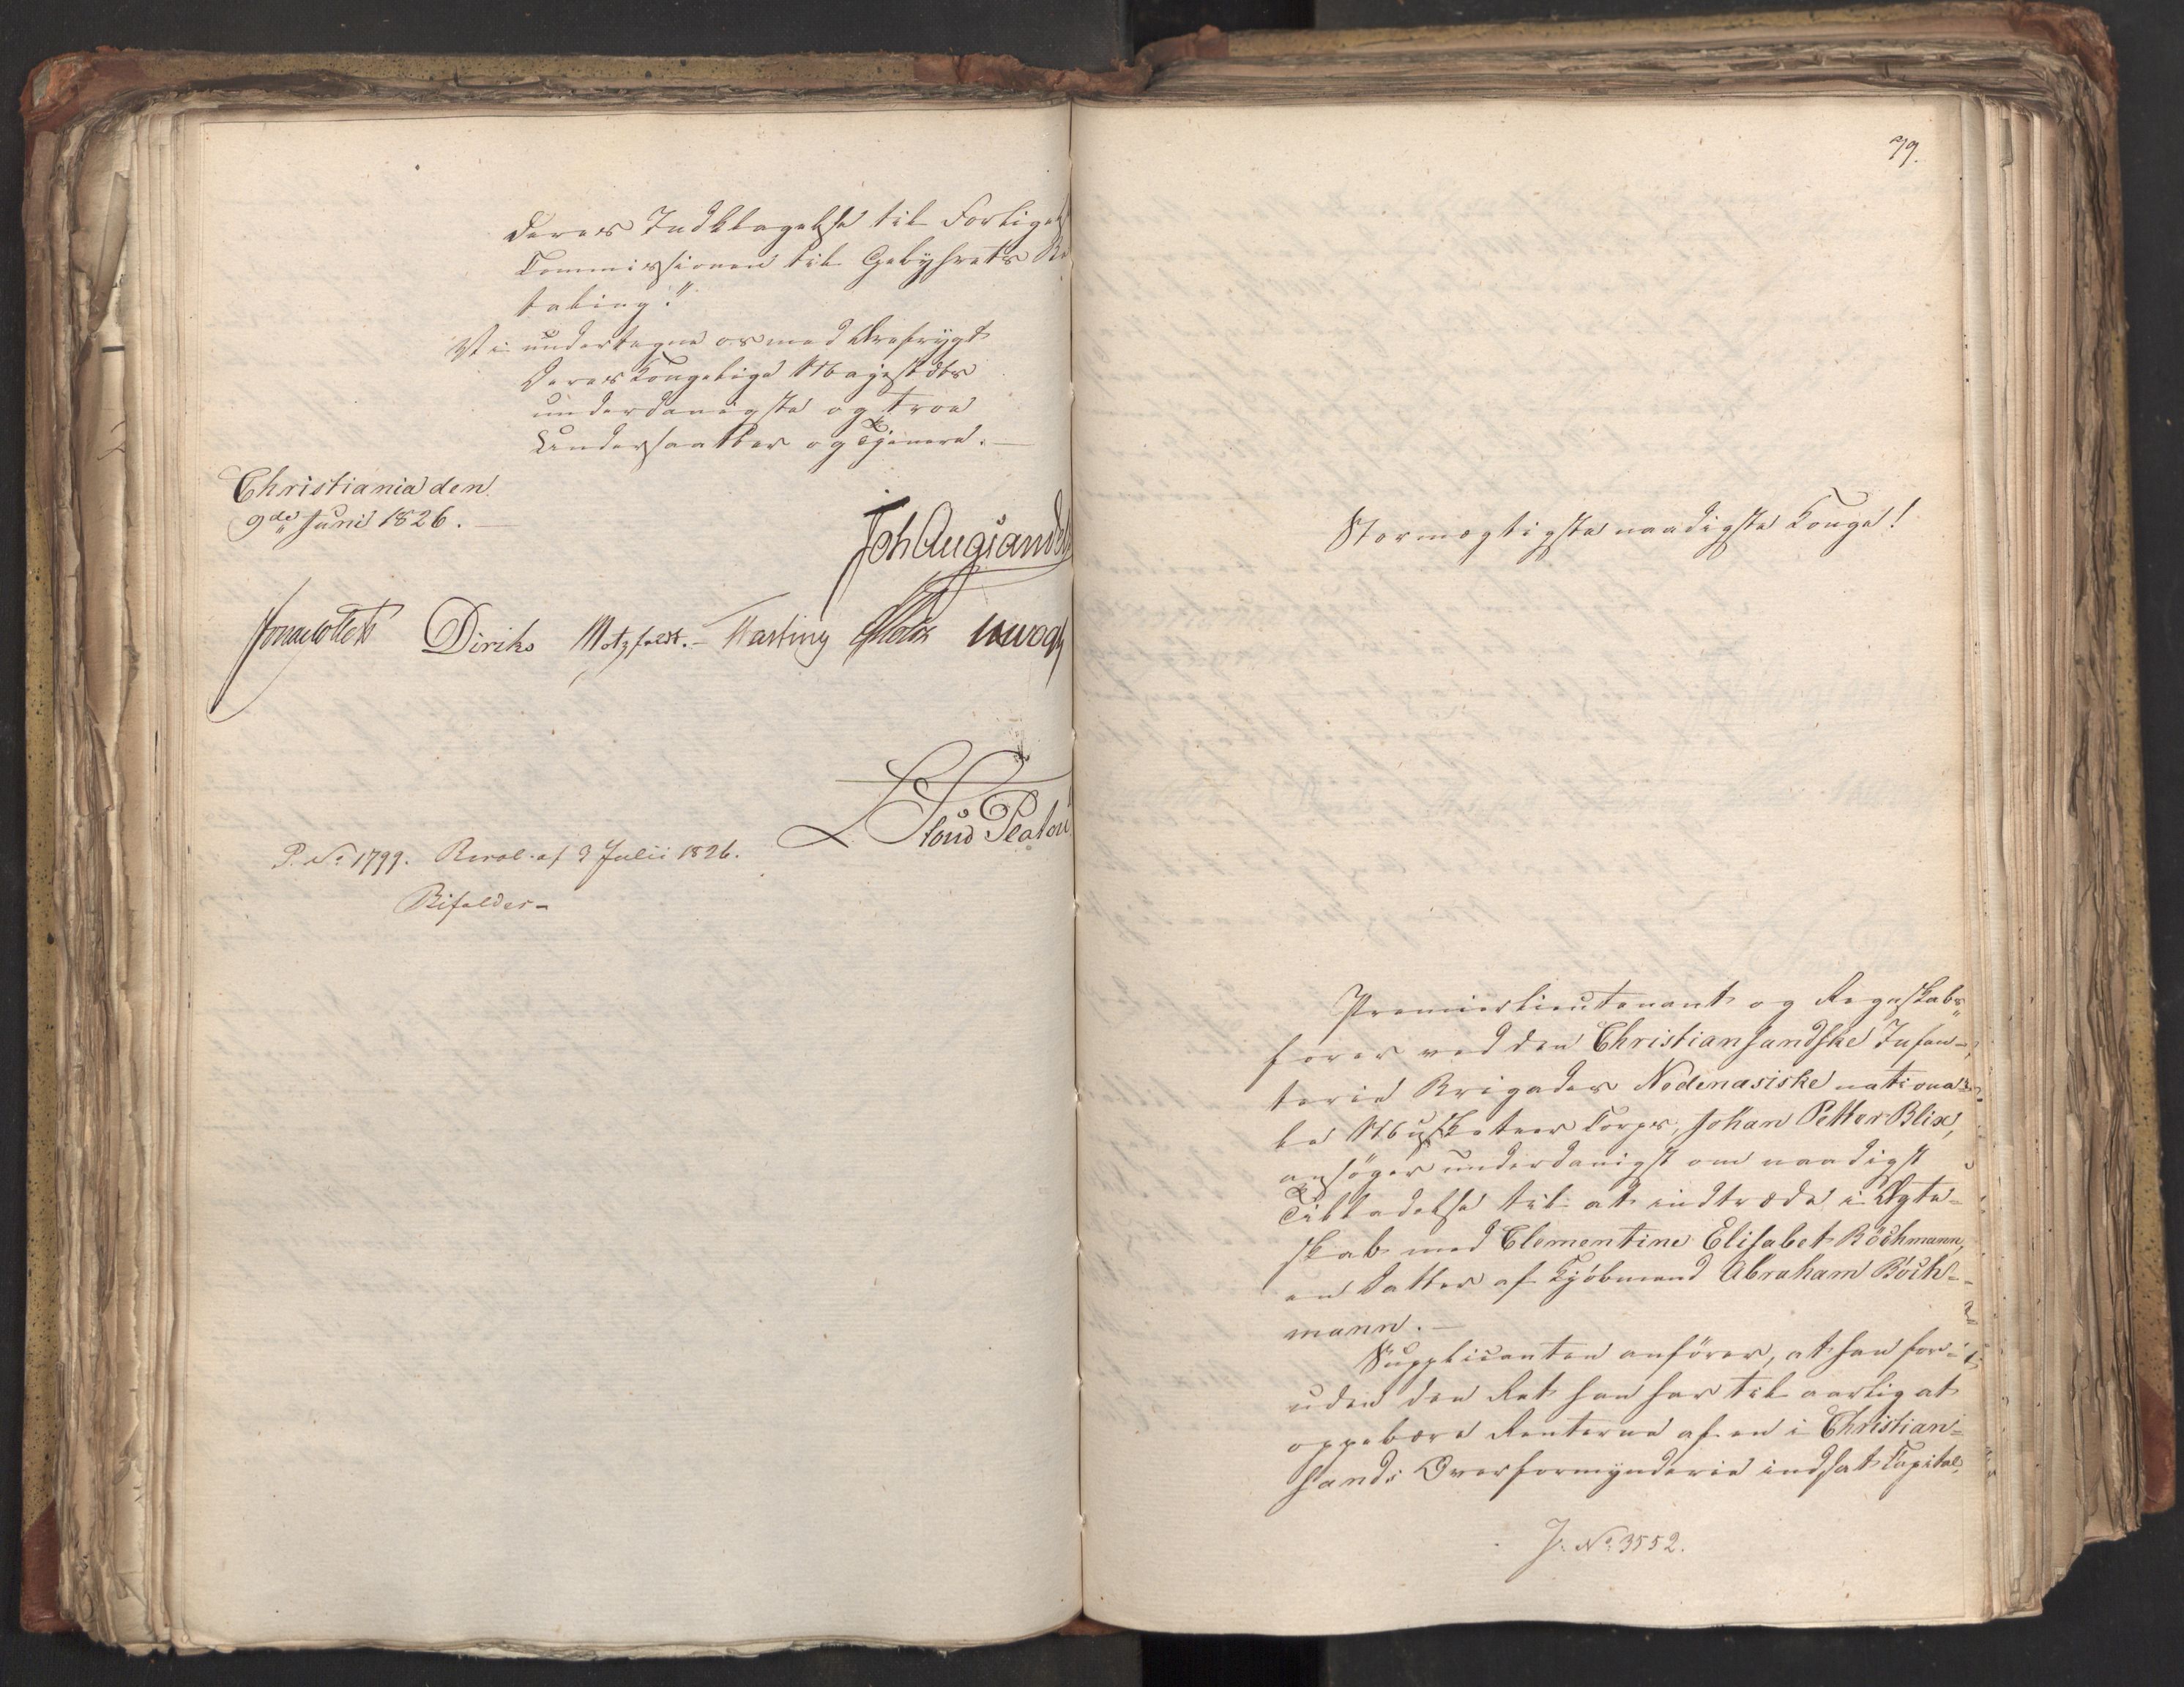 deres Indklagelse til Forligels
Commissionen til Gebyhrets Be
taling."
Vi undertegne os med Ærefrygt
Deres Kongelige Majestæts
underdanigste og troe
Undersaatter og Tjenere.
Christiania den
9de Juni 1826.
Joh Aug Sandels
Jonas Collett Diriks Motzfeldt. Fasting Holst
L Stoud Platou
P. No 1799. Resol. af 3 Julii 1826.
Bifaldes
79.
Stormægtigste naadigste Konge!
Premierlieutenant og Regnskabs
fører ved den Christiansandske Infan-
terie Brigades Nedenæsiske nationa-
le Musketeer Corps, Johan Petter Blix,
ansøger underdanigst om naadigst
Tilladelse til at indtræde i Ægte-
skab med Clementine Elisabet Böchmann,
en Datter af Kjøbmand Abraham Böch-
mann.
Supplicanten anfører, at han for-
uden den Ret han har til aarlig at
oppebære Renterne af en i Christian-
sands Overformynderie indsat Capital,
J. No 3552.